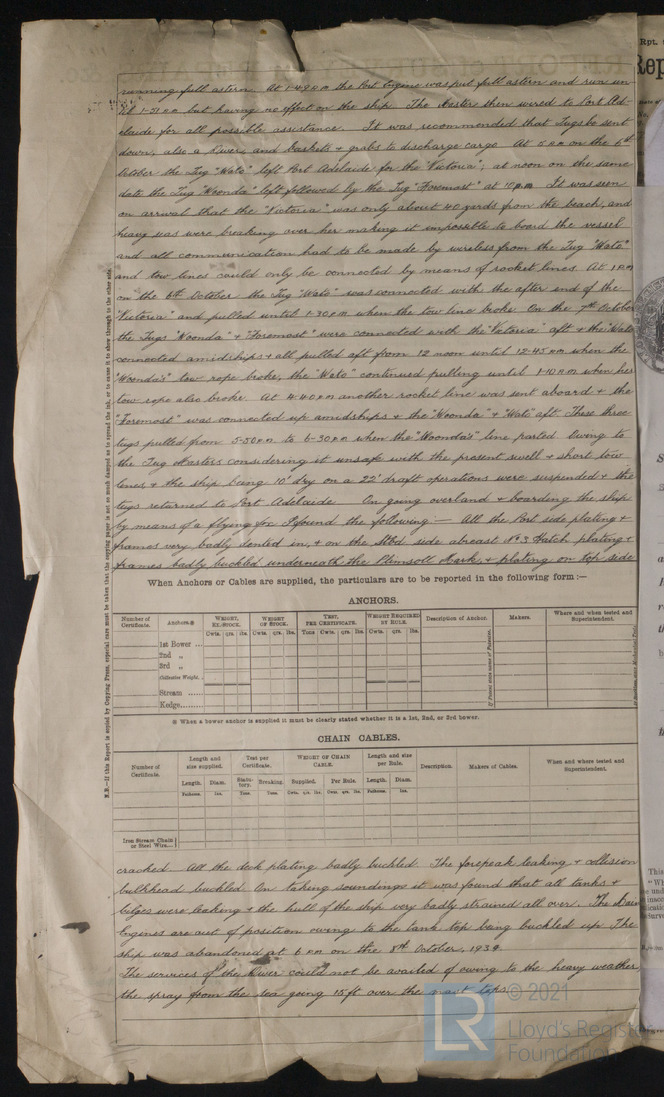 running full astern. At 1-49 P.M. the Port Engine was put full astern and run un
til 1-51 P.M. but having no effect on the ship. The Master then wired to Port Ad-
elaide for all possible assistance. It was recommended that Tugs be sent
down, also a Diver, and baskets & grabs to discharge cargo. At 5 A.M. on the 6th
October the Tug "Wato" left Port Adelaide for the "Victoria"; at noon on the same
date the Tug "Woonda" left followed by the Tug "Foremost" at 10 P.M. It was seen
on arrival that the "Victoria" was only about 40 yards from the beach, and
heavy seas were breaking over her making it impossible to board the vessel
and all communication had to be made by wireless from the Tug "Wato"
and tow lines could only be connected by means of rocket lines. At 1 P.M.
on the 6th October the Tug "Wato" was connected with the after end of the
"Victoria" and pulled until 1-30 P.M. when the tow line broke. On the 7th October
the Tugs "Woonda" & "Foremost" were connected with the "Victoria" aft & the "Wato"
connected amidships & all pulled aft from 12 noon until 12-45 P.M. when the
"Woonda's" tow rope broke, the "Wato" continued pulling until 1-10 P.M. when her
tow rope also broke. At 4-40 P.M. another rocket line was sent aboard & the
"Foremost" was connected up amidships & the "Woonda" & "Wato" aft. These three
tugs pulled from 5-50 P.M. to 6-30 P.M. when the "Woonda's" line parted. Owing to
the Tug Masters considering it unsafe with the present swell & short tow
lines, & the ship being 10' dry on a 22' draft operations were suspended & the
tugs returned to Port Adelaide. On going overland & boarding the ship
by means of a flying fox I found the following:— All the Port side plating &
frames very badly dented in, & on the Stbd side abreast No 3 Hatch plating &
frames badly buckled underneath the Plimsoll Mark, & plating on top side
When Anchors or Cables are supplied, the particulars are to be reported in the following form:—
ANCHORS.
Number of Certificate. Anchors.※ WEIGHT, EX. STOCK. WEIGHT OF STOCK. TEST, PER CERTIFICATE. WEIGHT REQUIRED BY RULE. Description of Anchor. Makers. Where and when tested and Superintendent.
Cwts. qrs. lbs. Cwts. qrs. lbs. Tons Cwts. qrs. lbs. Cwts. qrs. lbs.
1st Bower ...
2nd „
3rd „
Collective Weight.
Stream ......
Kedge........
※ When a bower anchor is supplied it must be clearly stated whether it is a 1st, 2nd, or 3rd bower.
CHAIN CABLES.
Number of Certificate. Length and size supplied. Test per Certificate. WEIGHT OF CHAIN CABLE. Length and size per Rule. Description. Makers of Cables. When and where tested and Superintendent.
Length. Diam. Statutory. Breaking. Supplied. Per Rule. Length. Diam.
Fathoms. Ins. Tons. Tons. Cwts. qrs. lbs. Cwts. qrs. lbs. Fathoms. Ins.
Iron Stream Chain
or Steel Wire...
cracked. All the deck plating badly buckled. The forepeak leaking & collision
bulkhead buckled. On taking soundings it was found that all tanks &
bilges were leaking & the hull of the ship very badly strained all over. The Main
Engines are out of position owing to the tank top being buckled up. The
ship was abandoned at 6 P.M. on the 8th October, 1934.
The services of the Diver could not be availed of owing to the heavy weather
the spray from the sea going 15 ft. over the mast tops.
N.B.—If this Report is copied by Copying Press, especial care must be taken that the copying paper is not so much damped as to spread the ink, or to cause it to show through to the other side.
© 2021
LR Lloyd's Register
Foundation